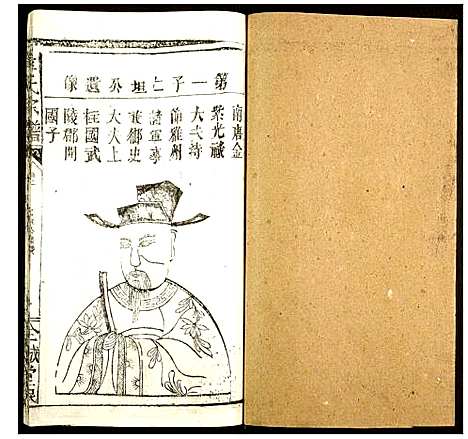 第一子仁坦公遺像
南唐金
紫光祿
大夫持
節雍州
諸軍事
兼御史
大夫上
柱國武
陵郡開
國子
章氏宗譜
全城堂